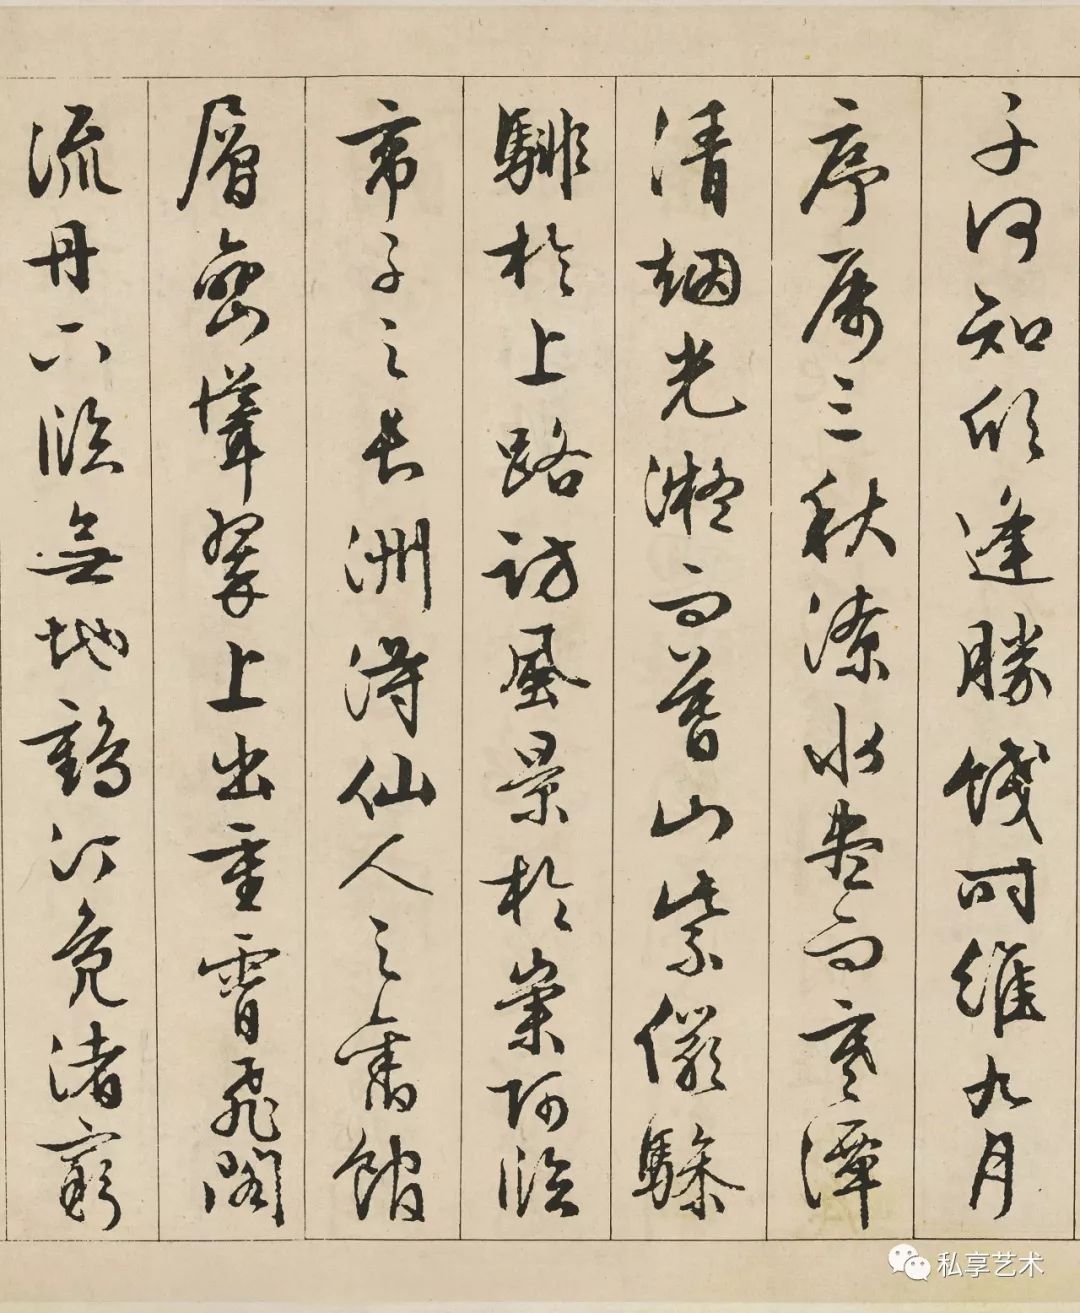 子何知欣逢勝餞時維九月
序属三秋潦水盡而寒潭
清烟光凝而暮山紫儼驂
騑於上路訪風景於崇阿臨
帝子之長洲得仙人之舊館
層巒聳翠上出重霄飛閣
流丹下臨無地鶴汀鳧渚窮
私享艺术